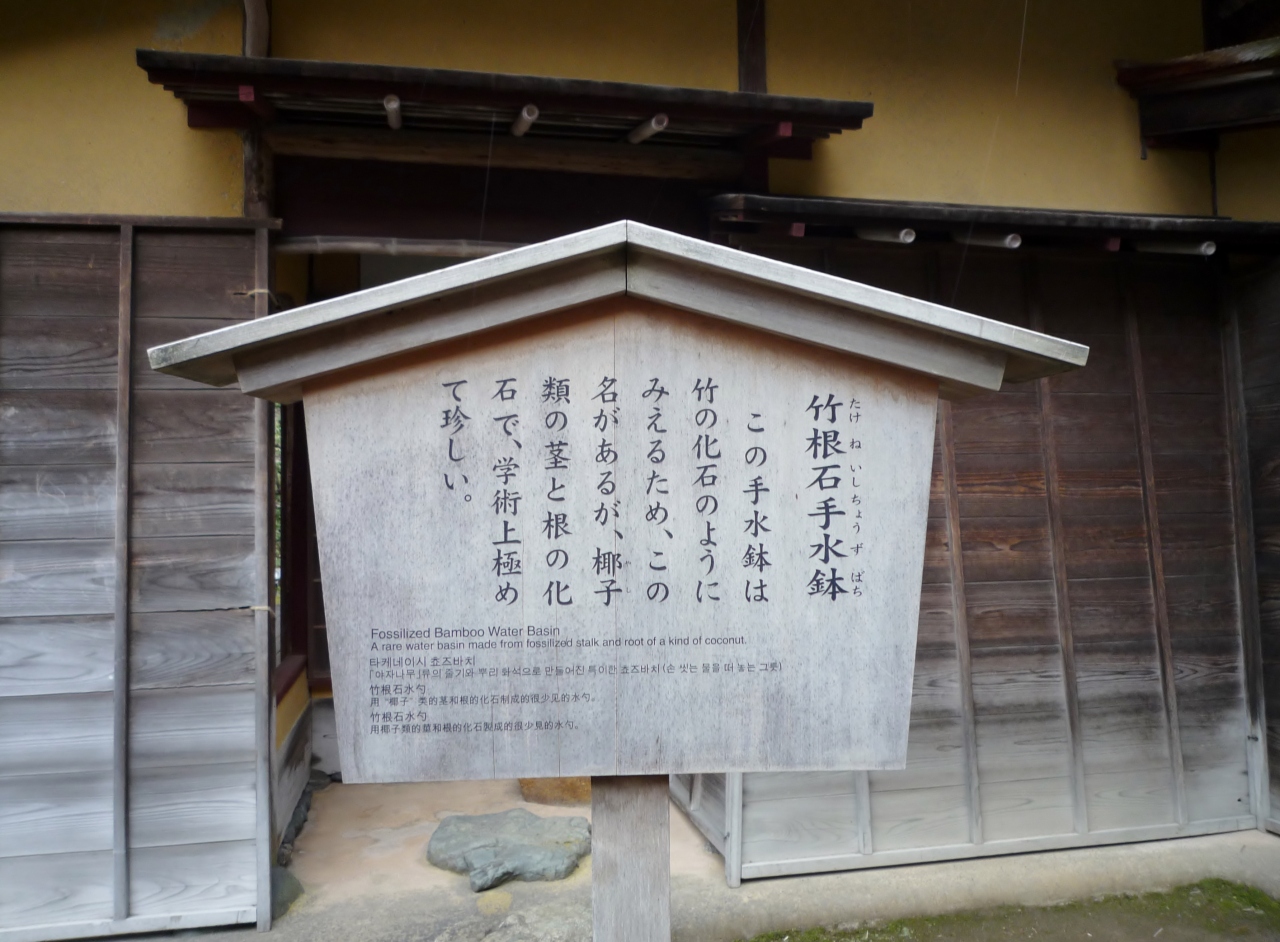 竹根石手水鉢
たけ ね いし ちょう ず ばち
この手水鉢は
竹の化石のように
みえるため、この
名があるが、椰子
類の茎と根の化
石で、学術上極め
て珍しい。
Fossilized Bamboo Water Basin
A rare water basin made from fossilized stalk and root of a kind of coconut.
타케네이시 쵸즈바치
「야자나무」류의 줄기와 뿌리 화석으로 만들어진 특이한 쵸즈바치(손 씻는 물을 떠 놓는 그릇)
竹根石水勺
用"椰子"类的茎和根的化石制成的很少见的水勺。
竹根石水勺
用椰子類的莖和根的化石製成的很少見的水勺。